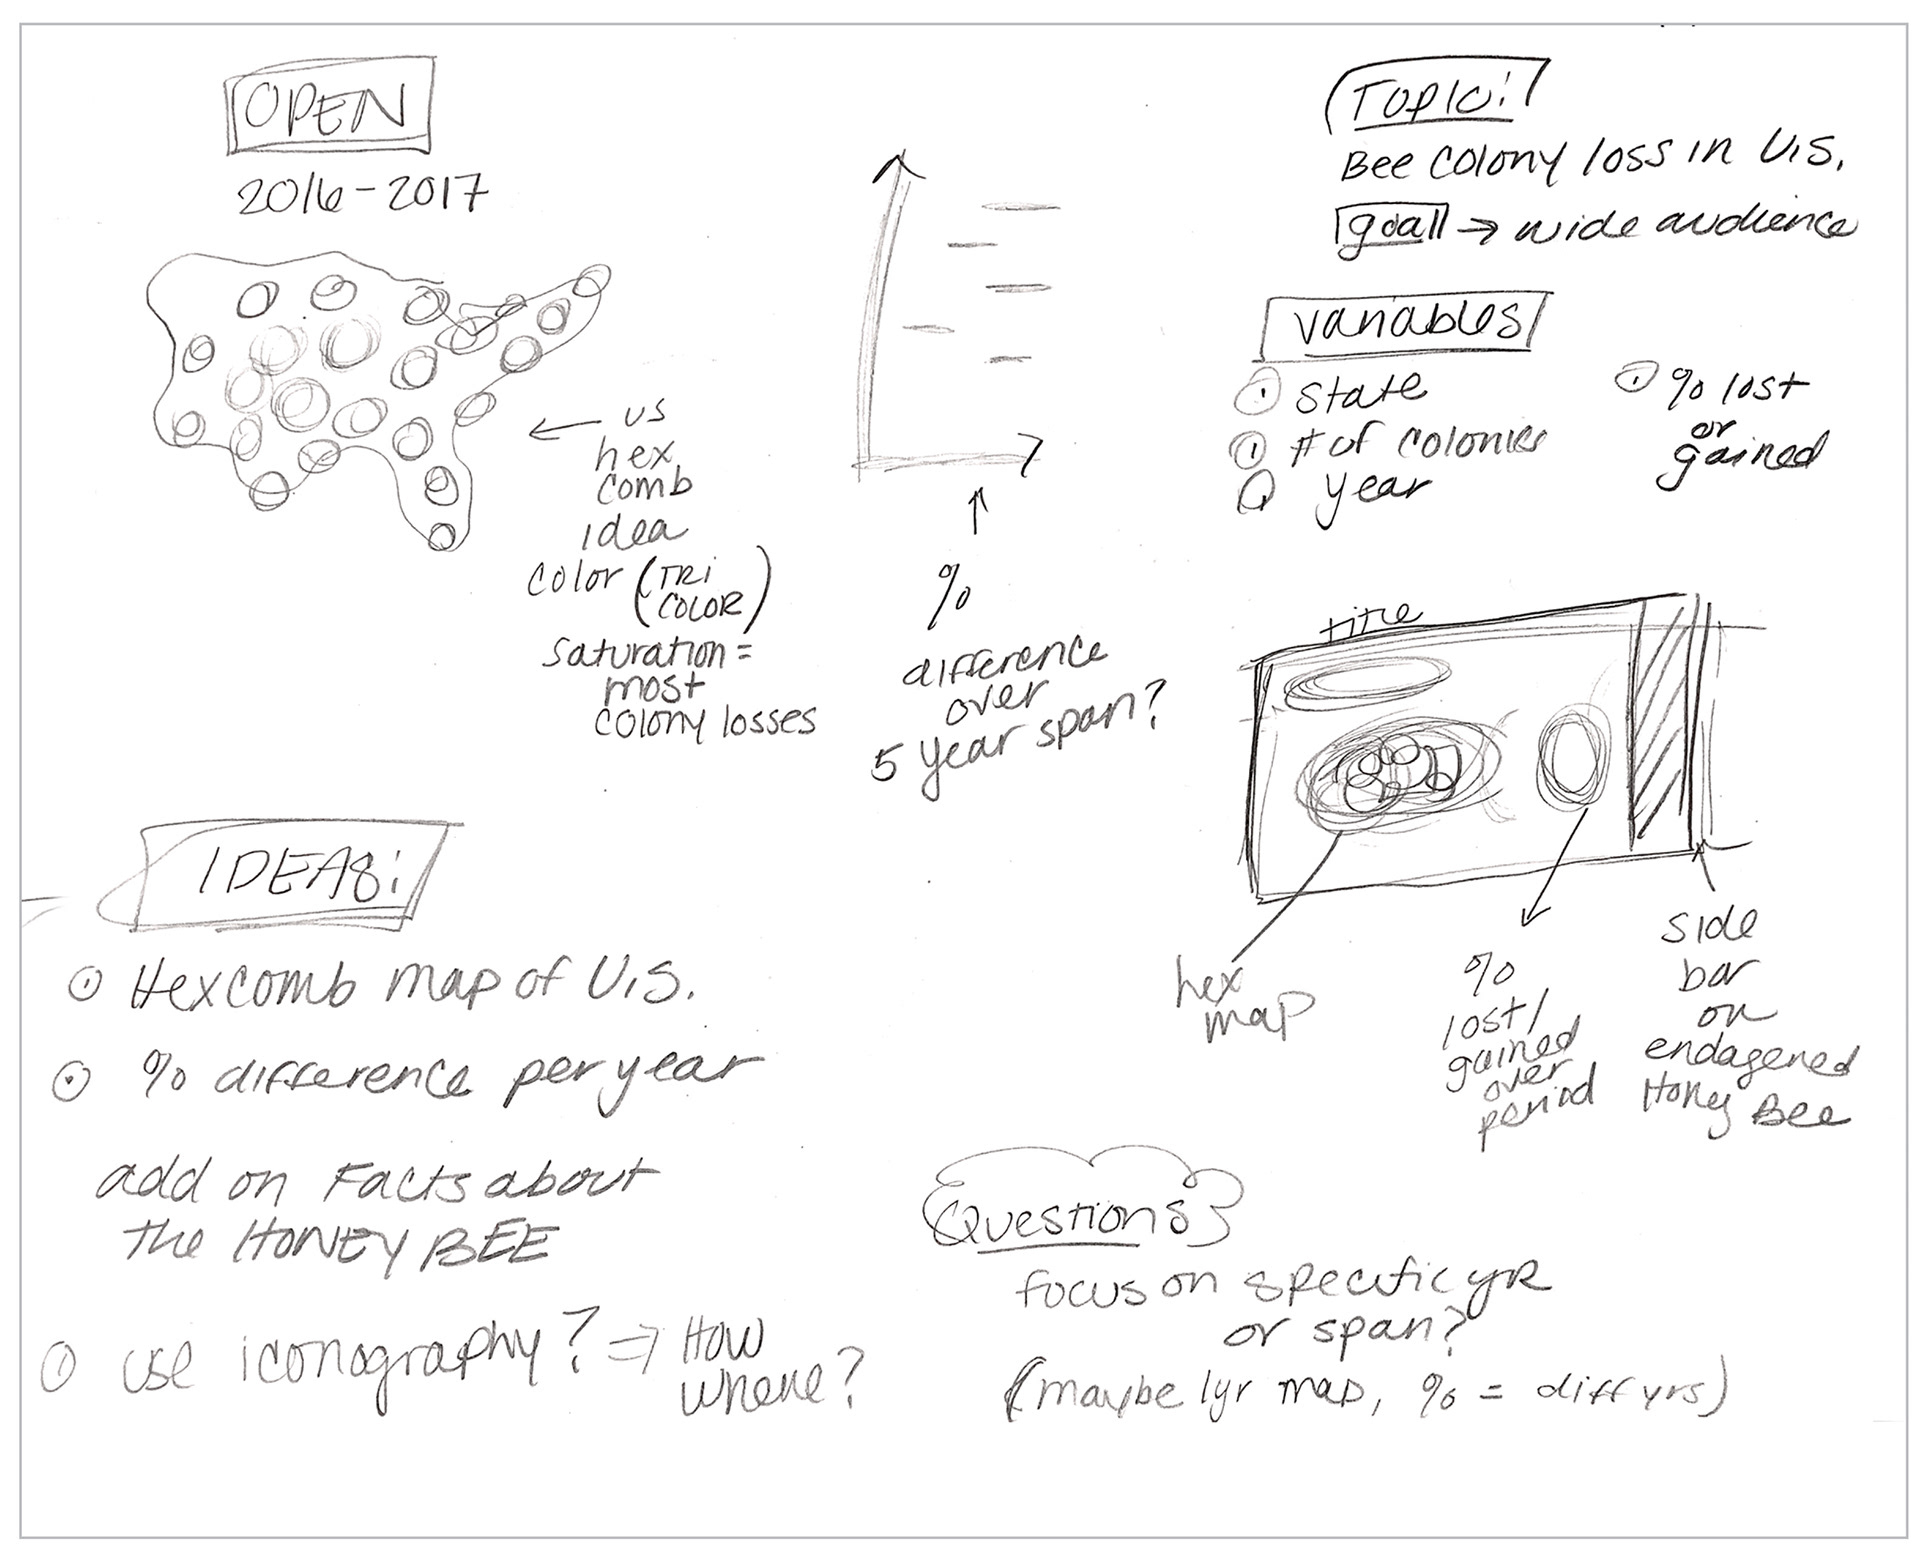 OPEN
2016-2017
← us
hex
comb
idea
color (TRI
COLOR)
saturation =
most
colony losses
%
difference
over
5 year span?
Topic:
Bee Colony loss in U.S.
goal → wide audience
variables
state
# of colonies
year
% lost
or
gained
title
hex
map
%
lost/
gained
over
period
side
bar
on
endagened
Honey Bee
IDEAS:
Hexcomb map of U.S.
% difference per year
add on Facts about
the HONEY BEE
use iconography? ⇒ How
where?
Questions
focus on specific yR
or span?
(maybe 1yr map, % = diff yrs)